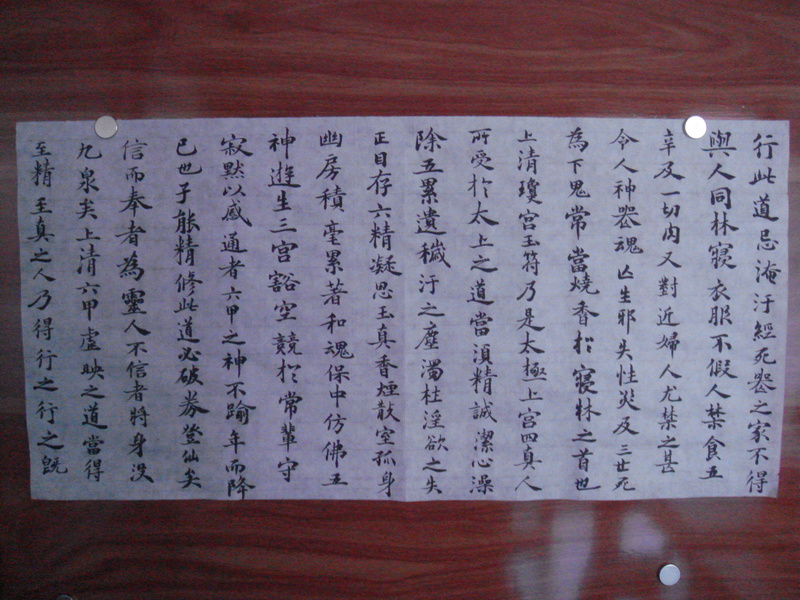 行此道忌淹汙經死喪之家不得
與人同牀寢衣服不假人禁食五
辛及一切肉又對近婦人尤禁之甚
令人神喪魂亡生邪失性災及三世死
為下鬼常當燒香於寢牀之首也
上清瓊宮玉符乃是太極上宮四真人
所受於太上之道當須精誠潔心澡
除五累遺穢汙之塵濁杜淫欲之失
正目存六精凝思玉真香煙散室孤身
幽房積毫累著和魂保中仿佛五
神遊生三宮豁空競於常輩守
寂默以感通者六甲之神不踰年而降
已也子能精修此道必破券登仙矣
信而奉者為靈人不信者將身沒
九泉矣上清六甲虛映之道當得
至精至真之人乃得行之行之既